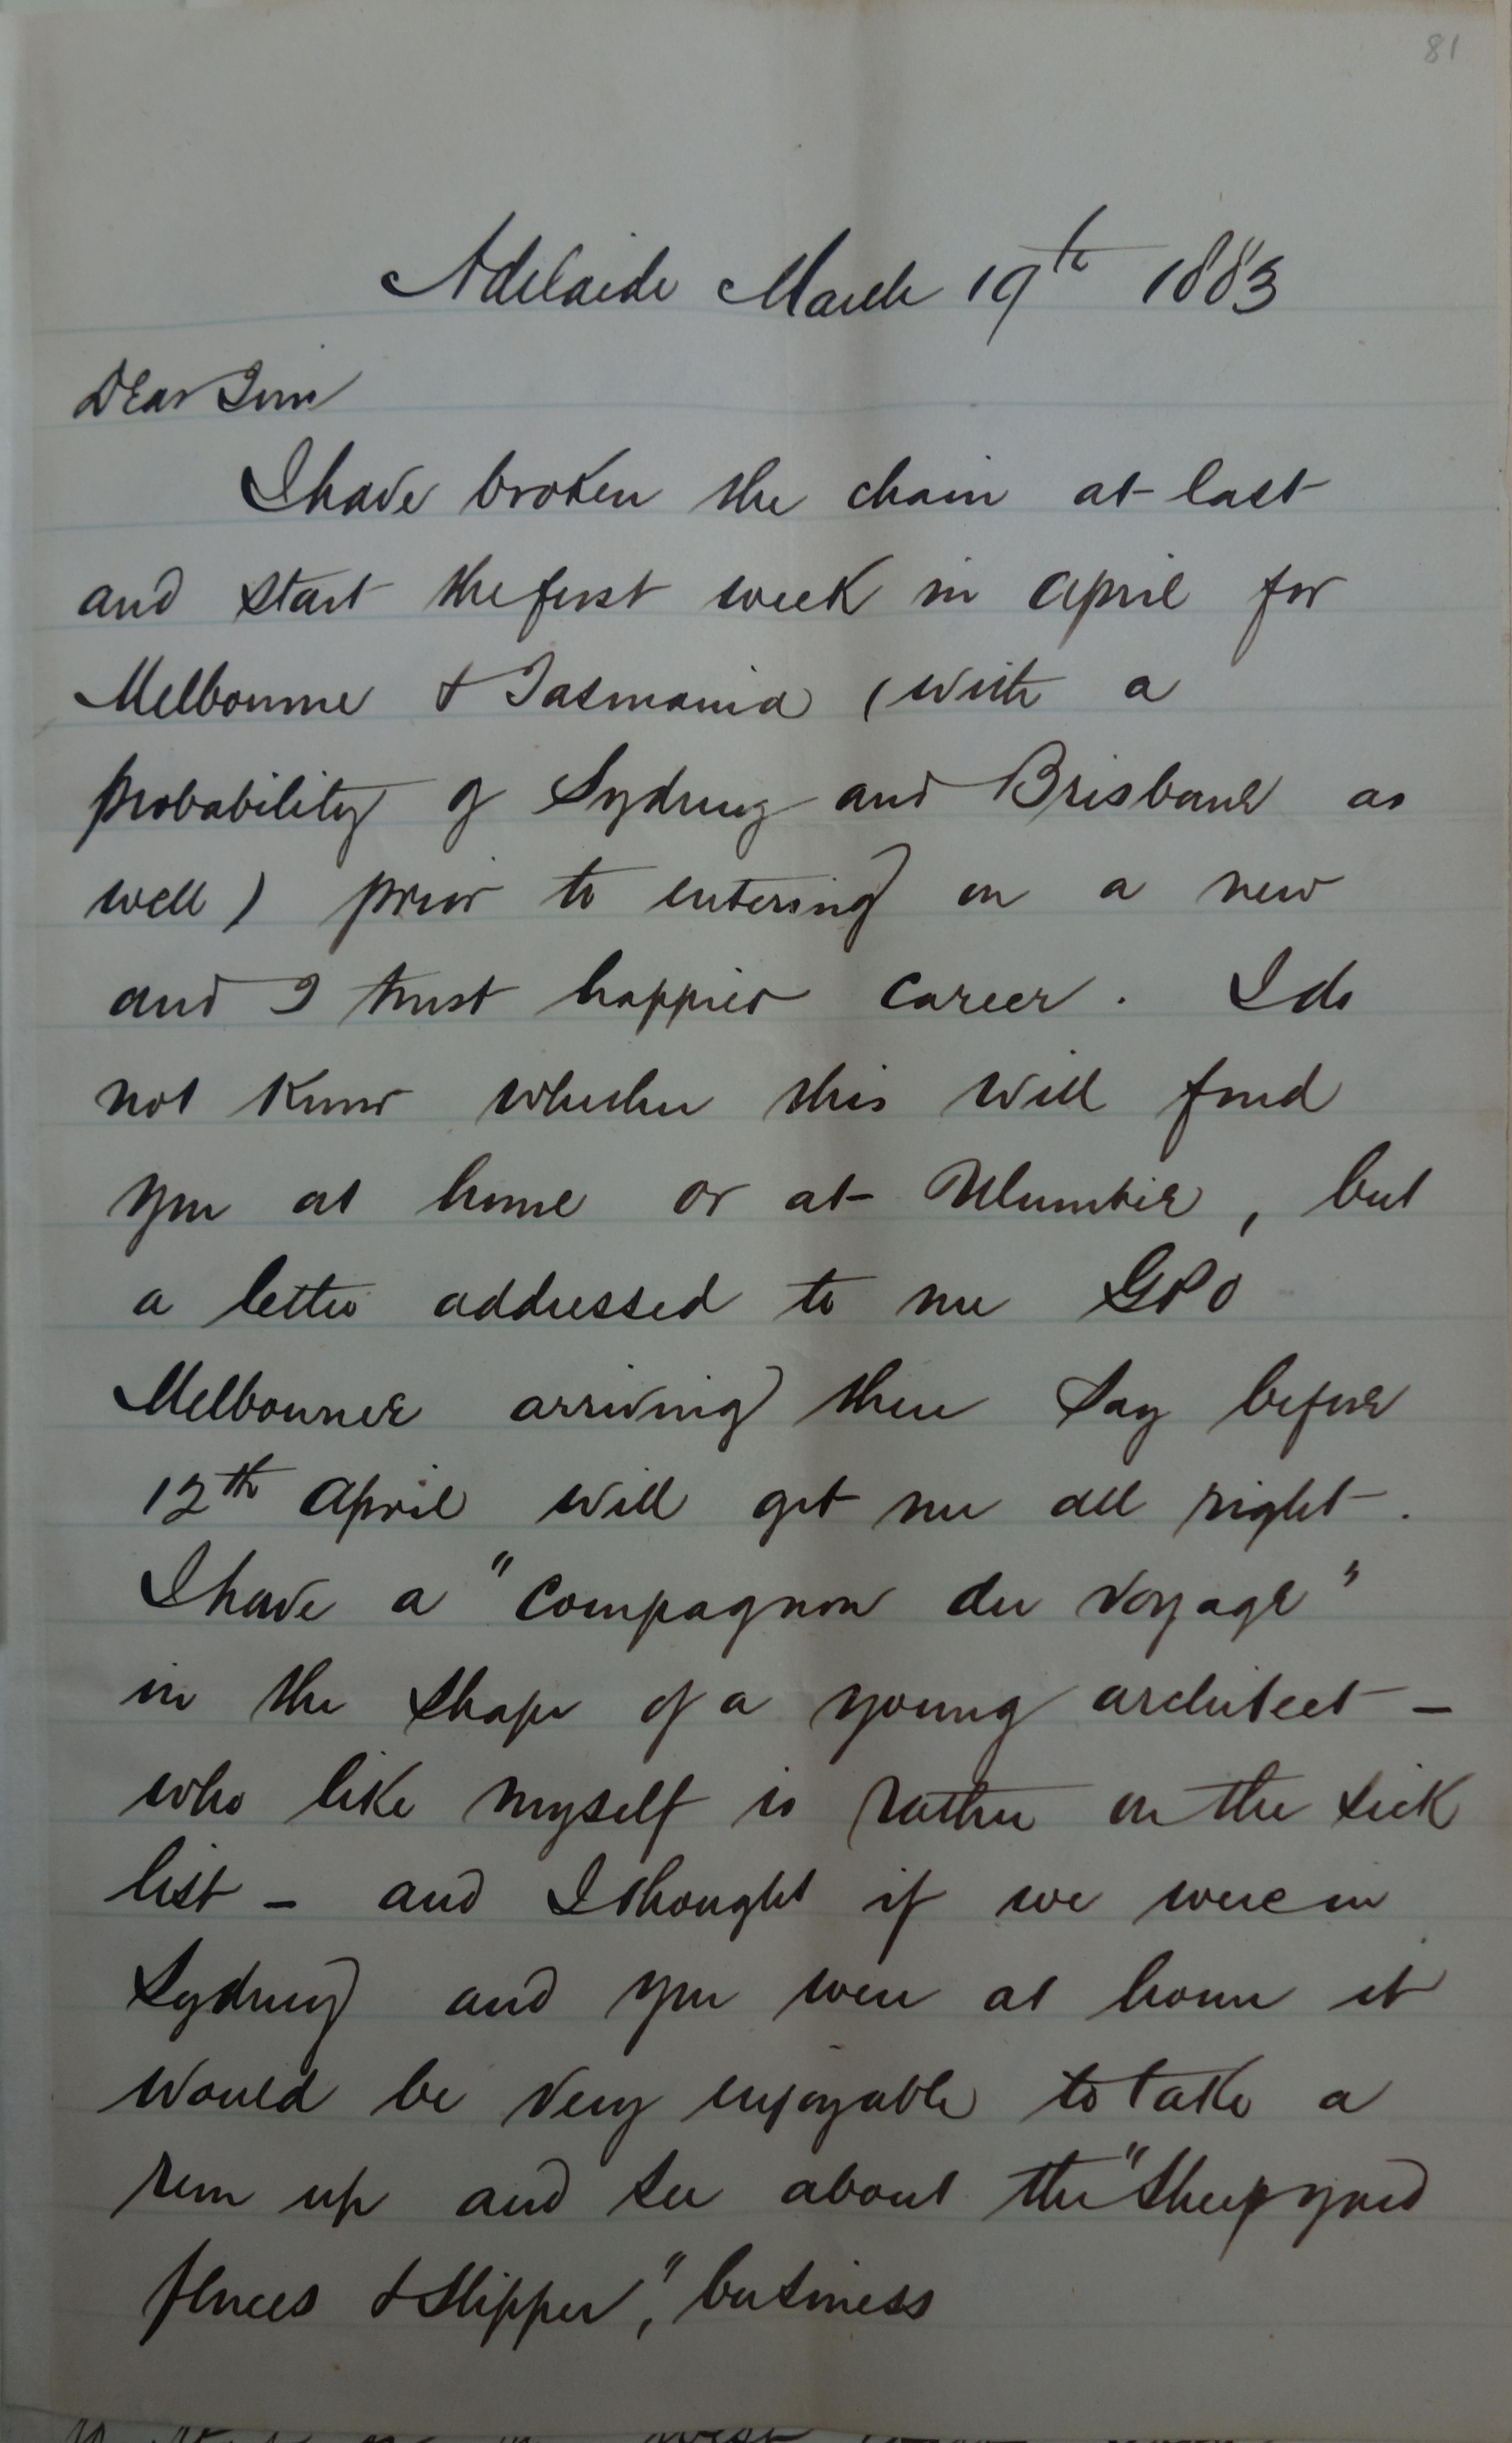 81
Adelaide March 19th 1883
Dear Jim
I have broken the chain at last
and start the first week in April for
Melbourne & Tasmania (with a
probability of Sydney and Brisbane as
well) prior to entering on a new
and I trust happier career. I do
not know whether this will find
you at home or at , but
a letter addressed to me GPO
Melbourne arriving there say before
12th April will get me all right.
I have a "Compagnon du Voyage"
in the shape of a young architect -
who like myself is rather on the sick
list - and I thought if we were in
Sydney and you were at home it
would be very enjoyable to take a
run up and see about the "Sheepyard
fences & Slipper," business